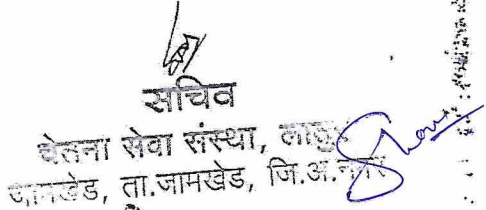 सचिव
चेतना सेवा संस्था,
जामखेड, ता.जामखेड, जि.अ.नगर